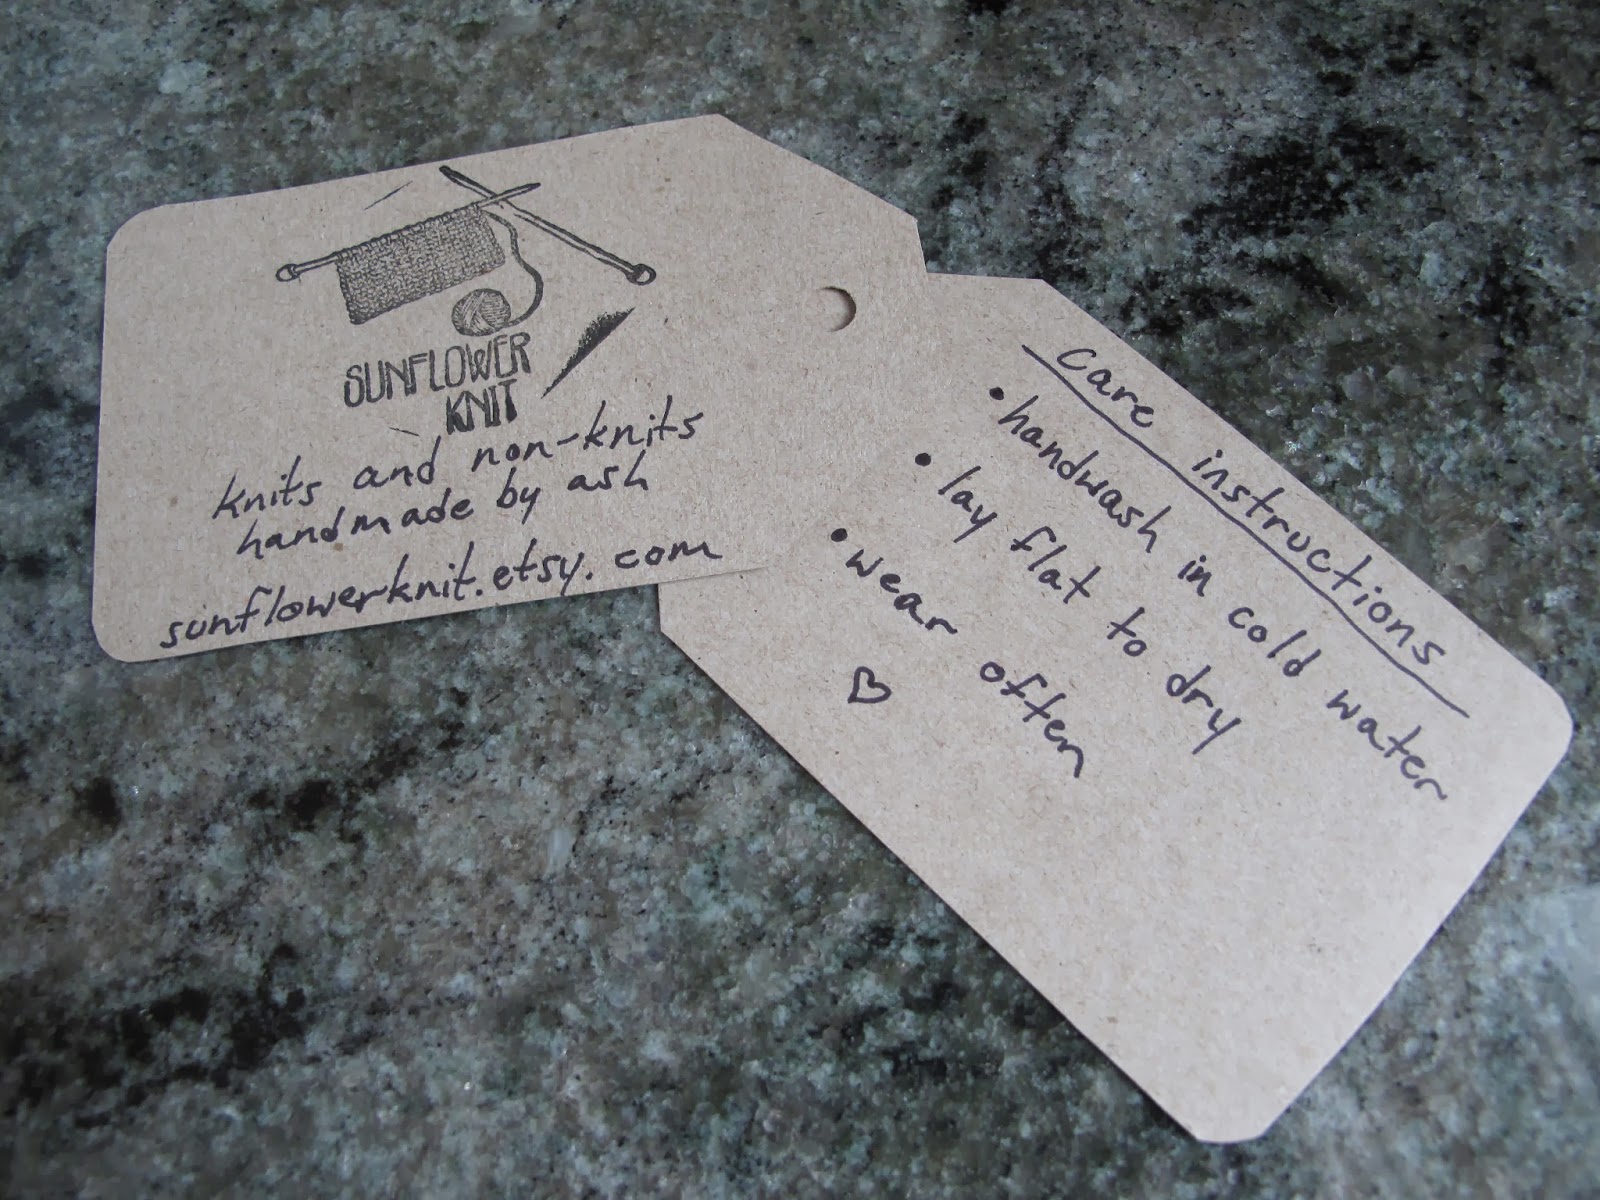 SUNFLOWER
KNIT
knits and non-knits
handmade by ash
sunflowerknit.etsy.com
care instructions
• handwash in cold water
• lay flat to dry
• wear often
♡